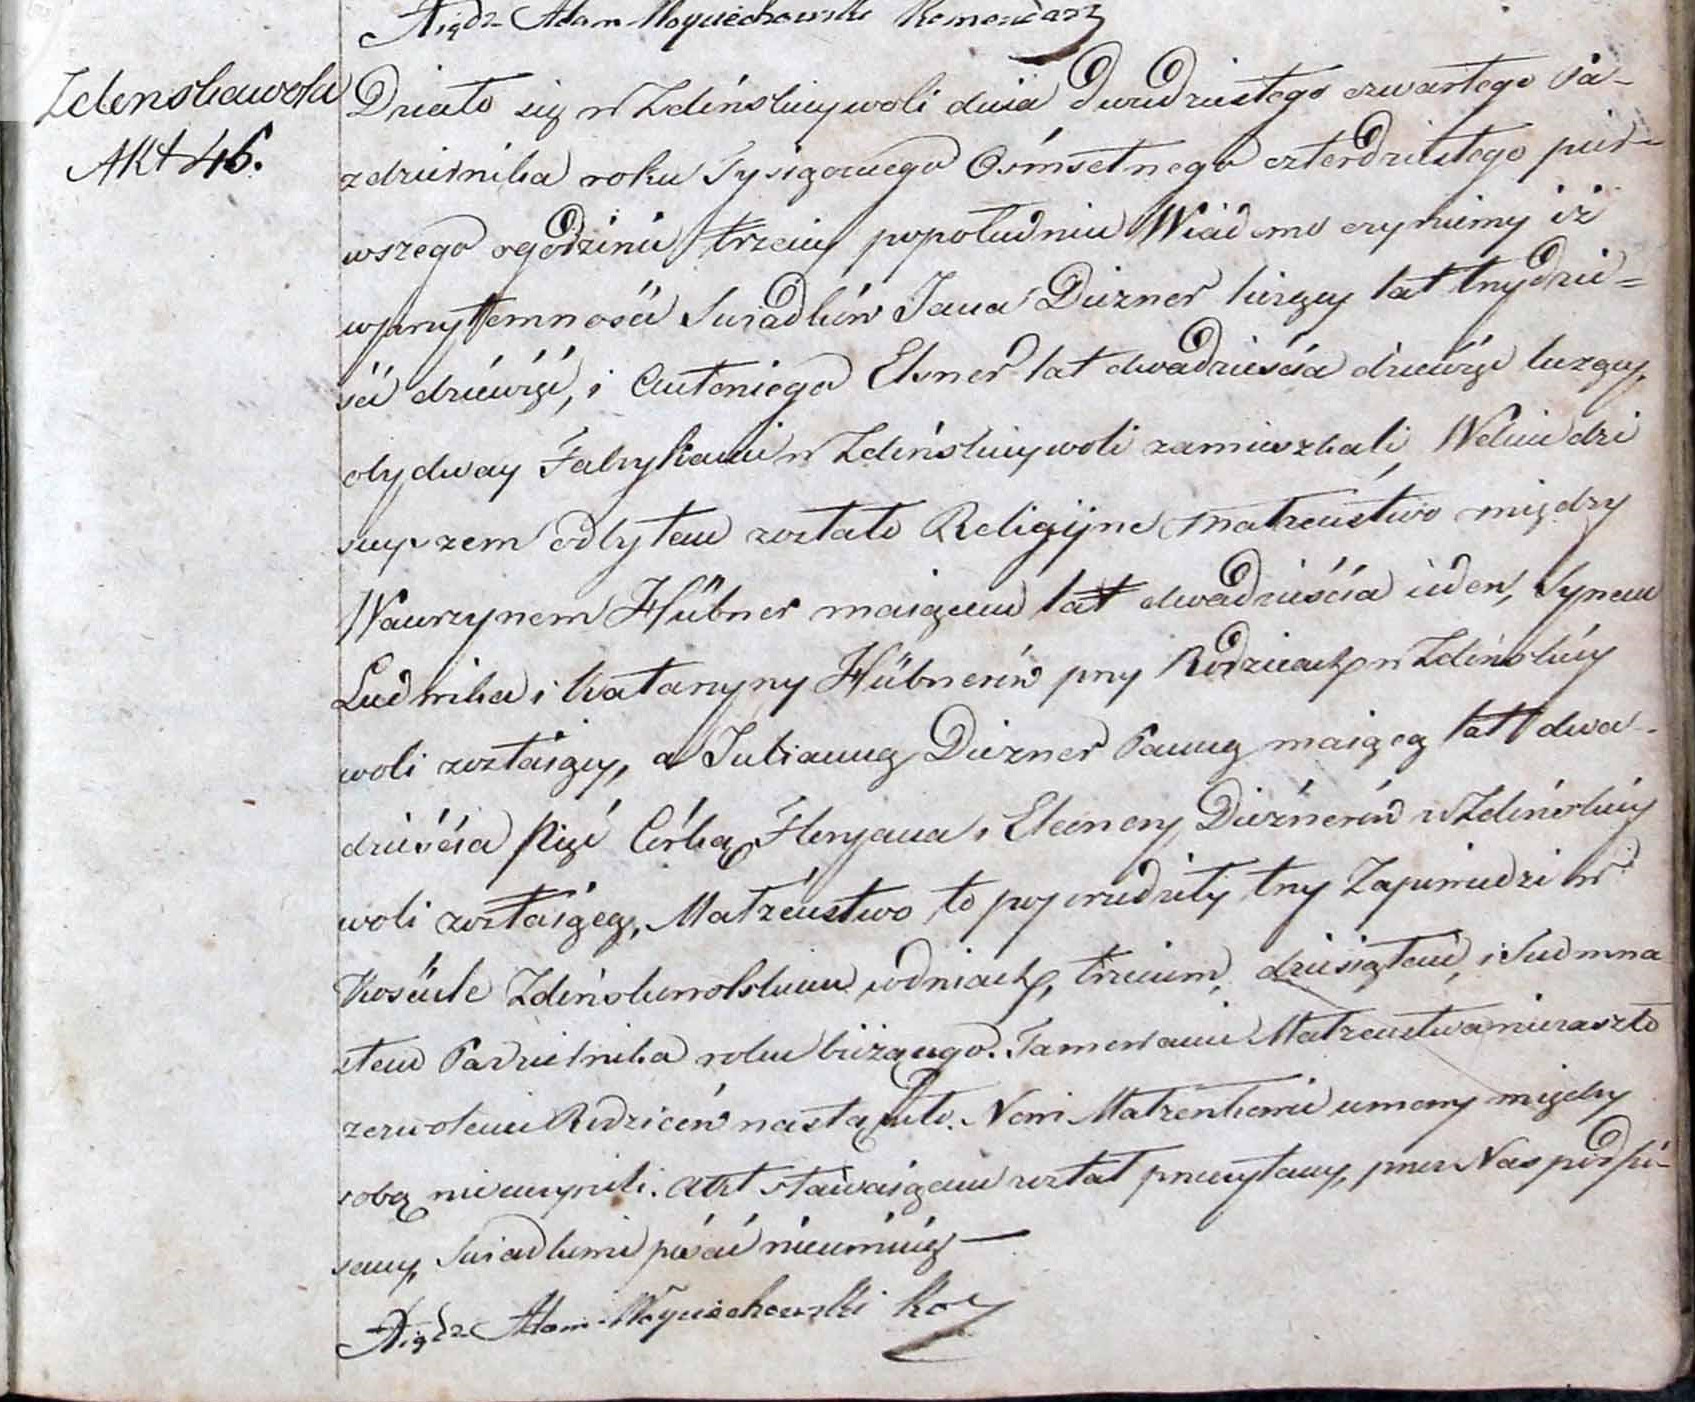 Xiądz Adam Woyciechowski Komendarz
Zdenskawola
Akt 46.
Działo się w Zdeńskieywoli dnia Dwudziestego czwartego Pa-
zdziernika roku Tysiącznego Ośmsetnego czterdziestego pier-
wszego ogodzinie trzeciey popołudniu Wiadomo czyniemy iż
wprzytemności Swiadków Jana Diezner liczący lat trzydzie=
ści dziewięć, i Antoniego Elsner lat dwadzieścia dziewięć liczący,
obydway Fabrykanci w Zdeńskieywoli zamieszkali, Wdniu dzi
sieyszem odbytem zostało Religijne Małzeństwo między
Wawrzynem Hübner maiącem lat dwadzieścia ieden, Synem
Ludwika i Katarzyny Hübnerów przy Rodzicach w Zdeńskiey
woli zostaiący, a Julianną Diezner Panną maiącą lat dwa-
dzieścia Pięć Córką Floryana i Eleonory Dieznerów w Zdeńskiey
woli zostaiącą, Małżeństwo to poprzedziły trzy Zapowiedzi w
Kościele Zdeńskowolskiem wdniach, trzeciem, dziesiątem, i Siedmna
stem Pazdziernika roku bieżącego. Tamowanie Małzenstwa niezaszło
zezwolenie Rodziców nastąpiło. Nowi Małzonkowie umowy między
sobą nieczynili. Akt stawaiącem został przeczytany, przez Nas podpi-
sany, Swiadkowie pisać nieumieią —
Xiądz Adam Woyciechowski Ko